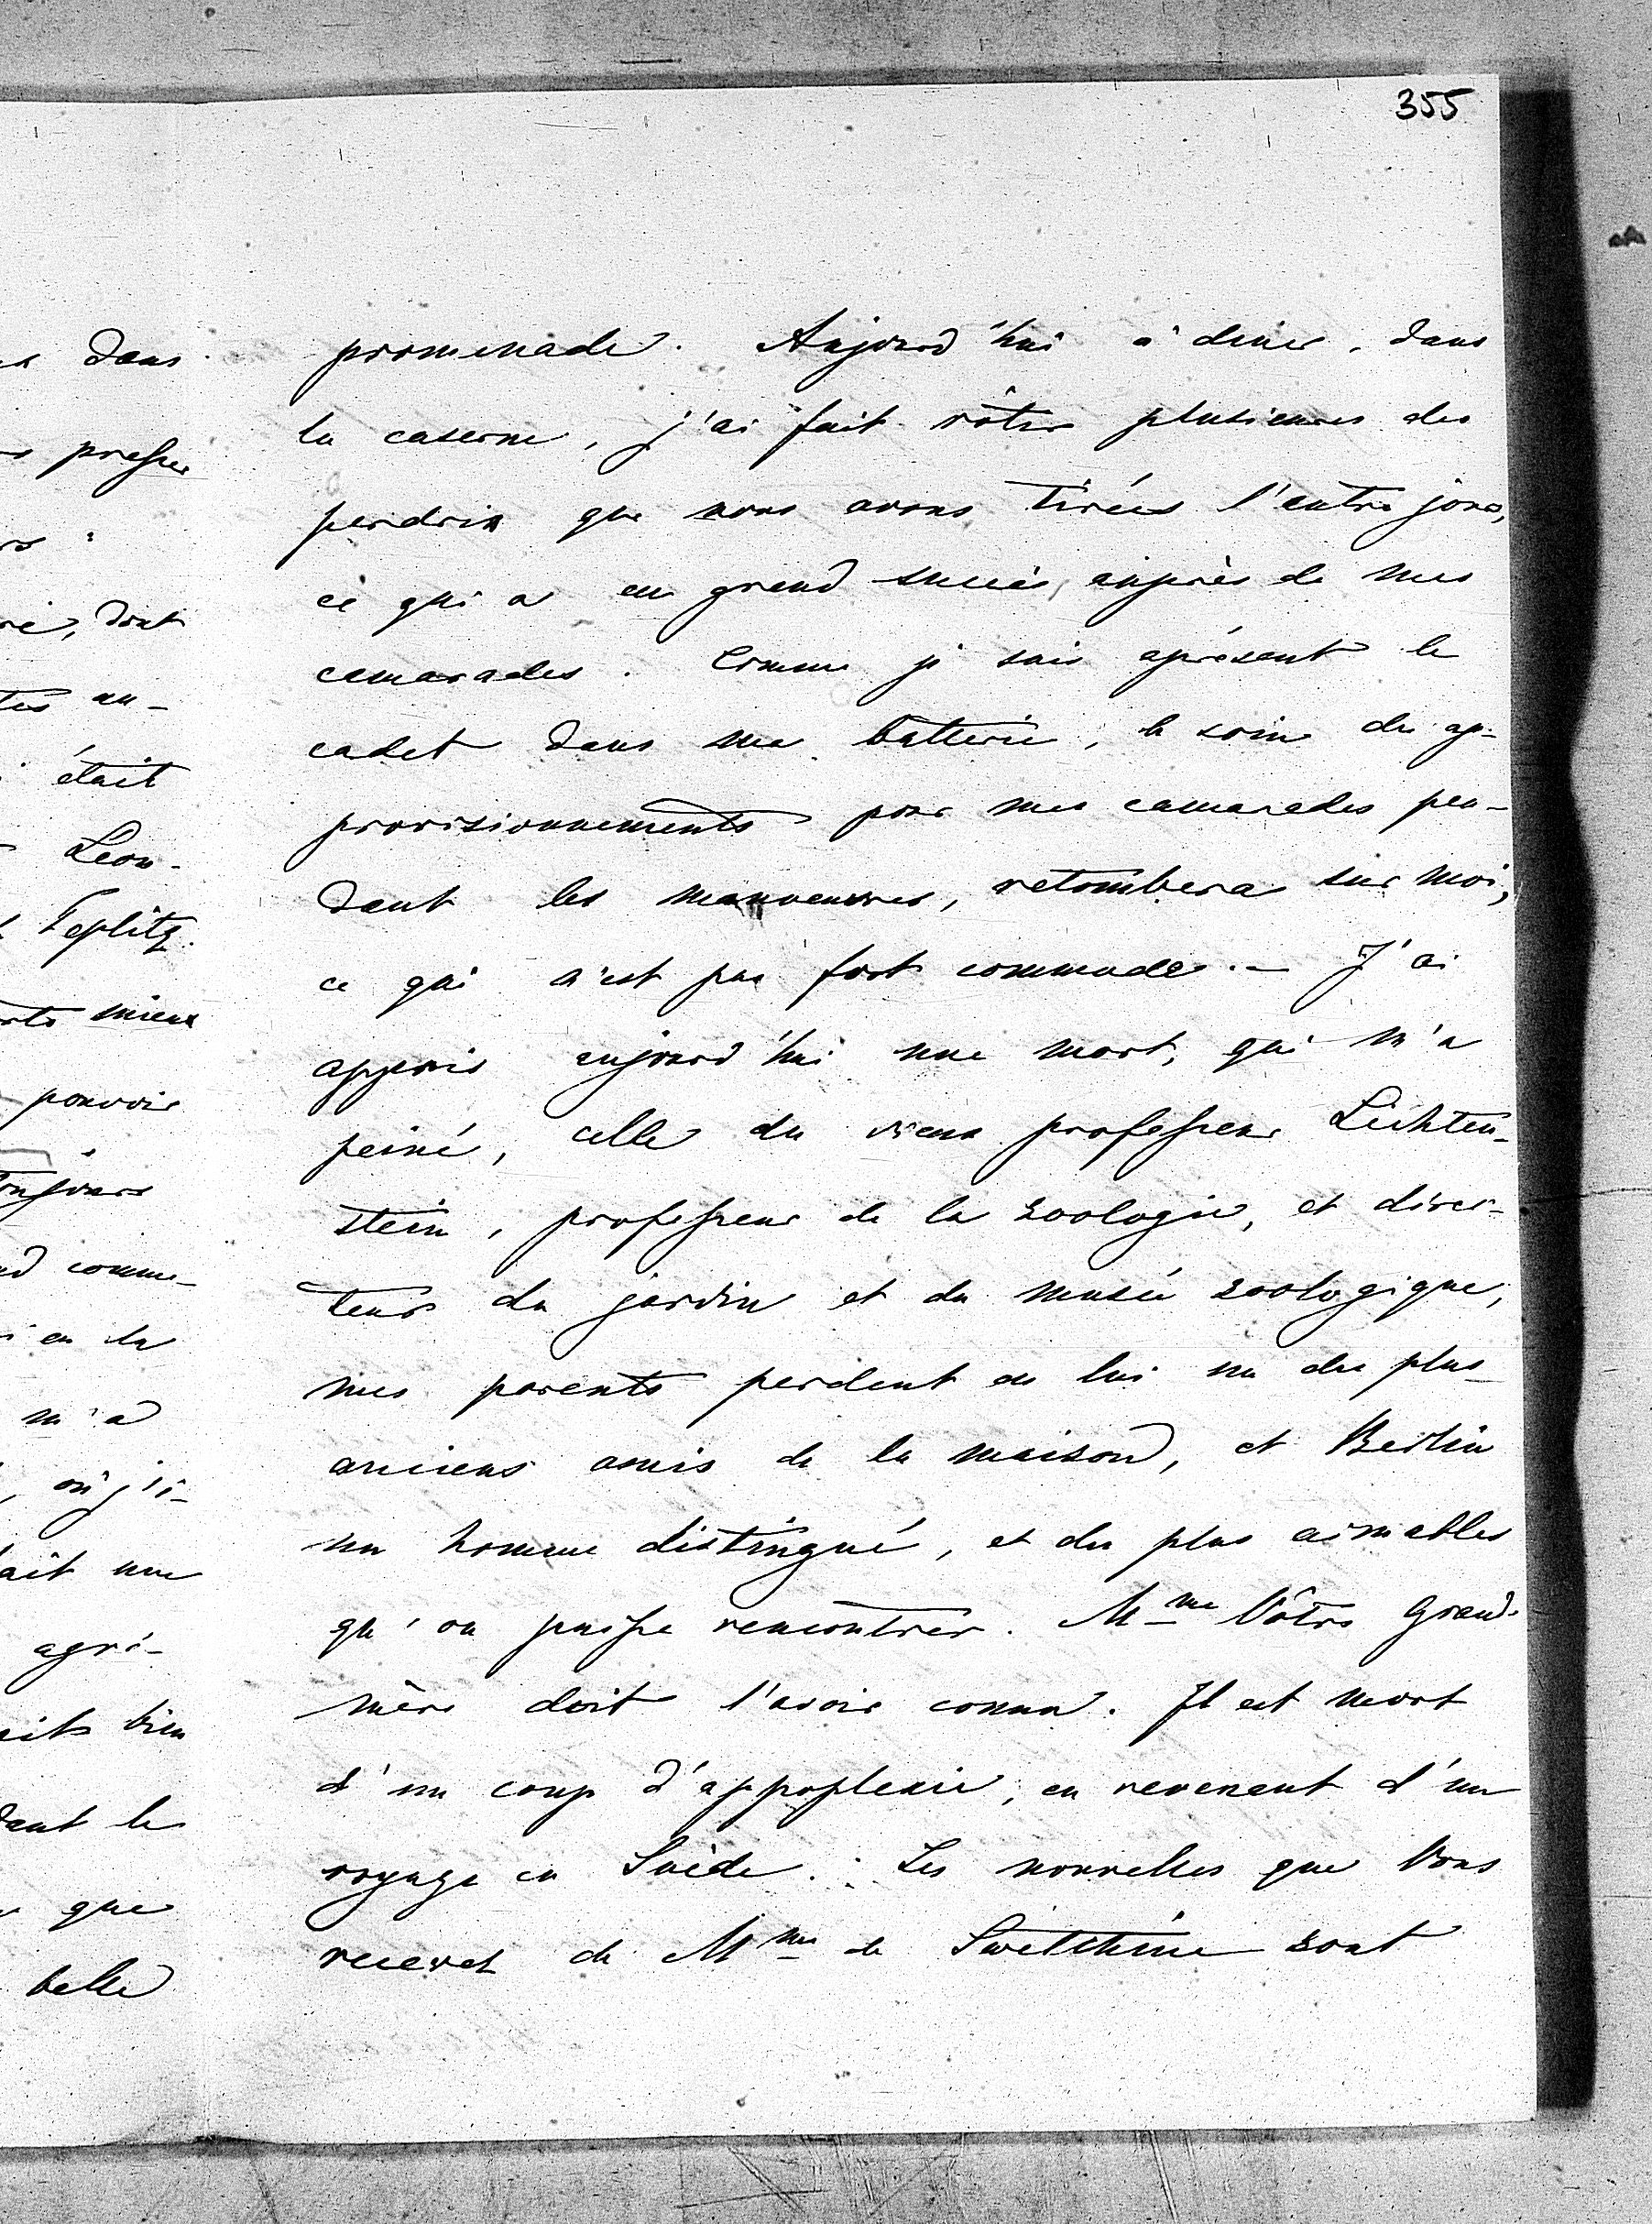 355
promenade. Aujourd'hui à diner, dans
la caserne, j'ai fait rôtir plusieures des
perdrix que nous avons tirées l'autre jour,
ce qui a eu grand succès, auprès de mes
camarades. Comme je suis aprésent le
cadet dans ma batterie, le soin des ap-
provisionnements pour mes camarades pen-
dant les manoeuvres, retombera sur moi,
ce qui n'est pas fort commode. — J'ai
appris aujourd'hui une mort, qui m'a
peiné, celle du vieux professeur Lichten-
stein, professeur de la zoologie, et direc-
teur du jardin et du musée zoologique,
mes parents perdent en lui un des plus
anciens amis de la maison, et Berlin
un homme distingué, et des plus aimables
qu'on puisse rencontrer. Mme Vôtre Grand-
mère doit l'avoir connu. Il est mort
d'un coup d'appoplexie, en revenant d'un
voyage en Suède. Les nouvelles que Vous
recevez de Mme de Swetchine sont
dans
presser
dont
au-
était
Leon-
Teplitz.
mieux
pouvoir
toujours
comme-
en la
m'a
où j'é-
une
agré-
bien
le
que
belle